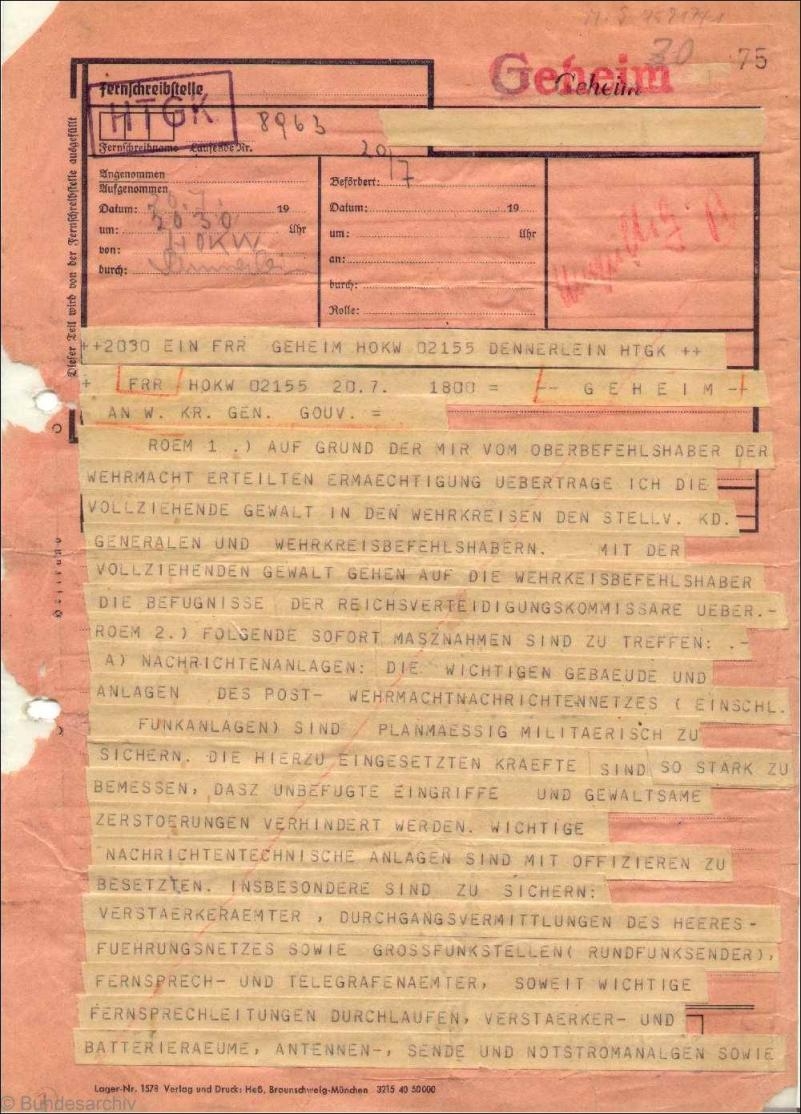 75
30
Geheim
Geheim
Fernschreibstelle
HTGK
8963
Fernschreibname Laufende Nr.
20/7
Angenommen
Aufgenommen
Datum: 20.7. 19
um: 2030 Uhr
von: HOKW
durch:
Befördert:
Datum: 19
um: Uhr
an:
durch:
Rolle:
Dieser Teil wird von der Fernschreibstelle ausgefüllt
++2030 EIN FRR GEHEIM HOKW 02155 DENNERLEIN HTGK ++
+ FRR HOKW 02155 20.7. 1800 = -- G E H E I M --
AN W. KR. GEN. GOUV. =
ROEM 1 .) AUF GRUND DER MIR VOM OBERBEFEHLSHABER DER
WEHRMACHT ERTEILTEN ERMAECHTIGUNG UEBERTRAGE ICH DIE
VOLLZIEHENDE GEWALT IN DEN WEHRKREISEN DEN STELLV. KD.
GENERALEN UND WEHRKREISBEFEHLSHABERN. MIT DER
VOLLZIEHENDEN GEWALT GEHEN AUF DIE WEHRKEISBEFEHLSHABER
DIE BEFUGNISSE DER REICHSVERTEIDIGUNGSKOMMISSARE UEBER.-
ROEM 2.) FOLGENDE SOFORT MASZNAHMEN SIND ZU TREFFEN: .-
A) NACHRICHTENANLAGEN: DIE WICHTIGEN GEBAEUDE UND
ANLAGEN DES POST- WEHRMACHTNACHRICHTENNETZES ( EINSCHL.
FUNKANLAGEN) SIND PLANMAESSIG MILITAERISCH ZU
SICHERN. DIE HIERZU EINGESETZTEN KRAEFTE SIND SO STARK ZU
BEMESSEN, DASZ UNBEFUGTE EINGRIFFE UND GEWALTSAME
ZERSTOERUNGEN VERHINDERT WERDEN. WICHTIGE
NACHRICHTENTECHNISCHE ANLAGEN SIND MIT OFFIZIEREN ZU
BESETZTEN. INSBESONDERE SIND ZU SICHERN:
VERSTAERKERAEMTER , DURCHGANGSVERMITTLUNGEN DES HEERES-
FUEHRUNGSNETZES SOWIE GROSSFUNKSTELLEN( RUNDFUNKSENDER),
FERNSPRECH- UND TELEGRAFENAEMTER, SOWEIT WICHTIGE
FERNSPRECHLEITUNGEN DURCHLAUFEN, VERSTAERKER- UND
BATTERIERAEUME, ANTENNEN-, SENDE UND NOTSTROMANALGEN SOWIE
Lager-Nr. 1578 Verlag und Druck: Heß, Braunschweig-München 3215 40 50000
© Bundesarchiv